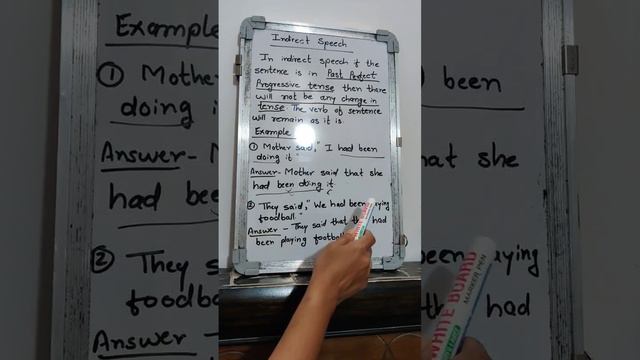 Indirect Speech
In indirect speech if the
sentence is in Past Perfect
Progressive tense then there
will not be any change in
tense. The verb of sentence
will remain as it is.
Example
① Mother said, "I had been
doing it"
Answer- Mother said that she
had been doing it
② They said, "We had been
foodball."
Answer - They said that had
been playing
Example
① Mother
doing it
Answer-
② They
Answer
been
she
been
had
WHITE BOARD
MARKER PEN